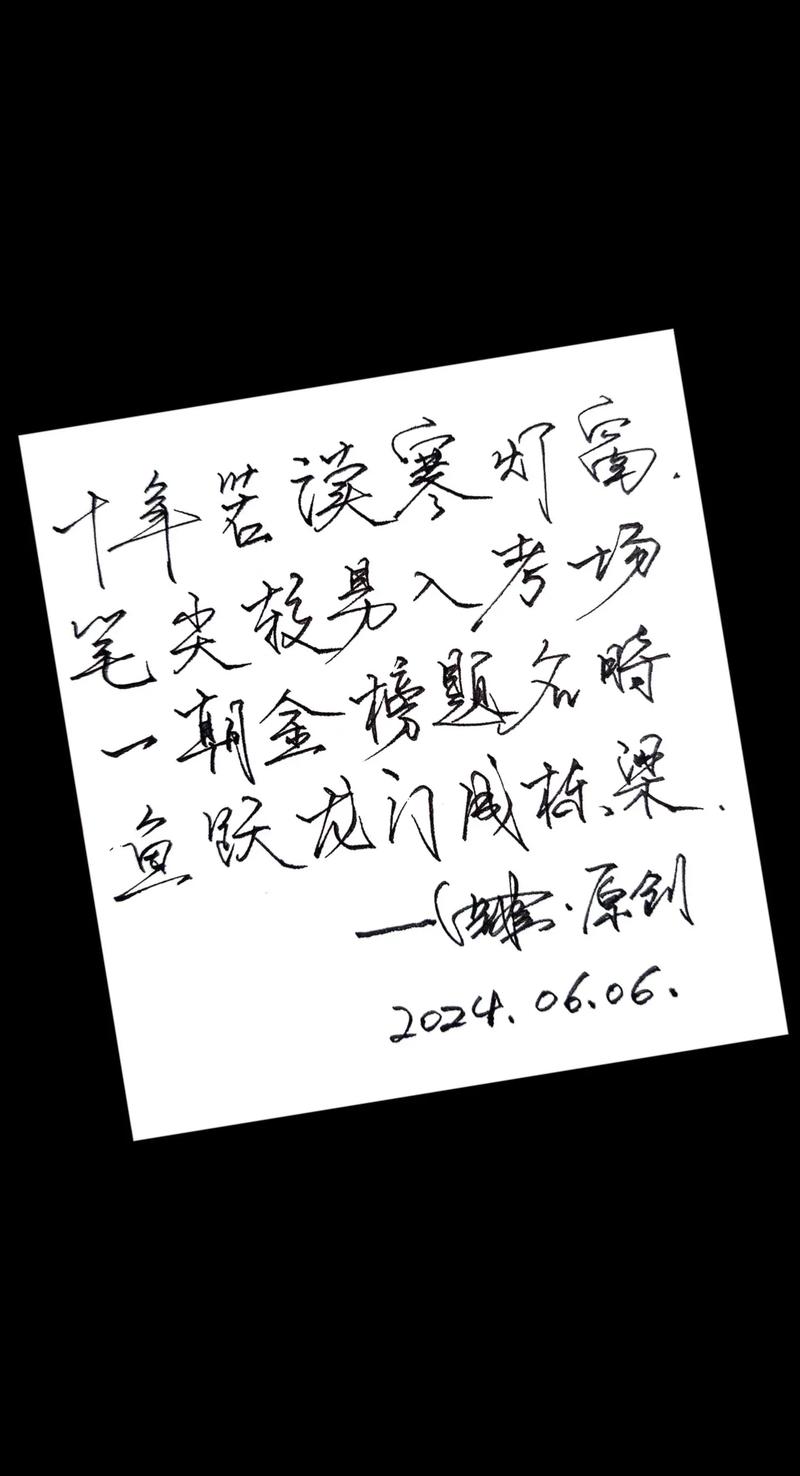 十年苦读寒灯窗.
笔尖较易入考场
一朝金榜题名时
鱼跃龙门成栋梁.
—— 原创
2024.06.06.